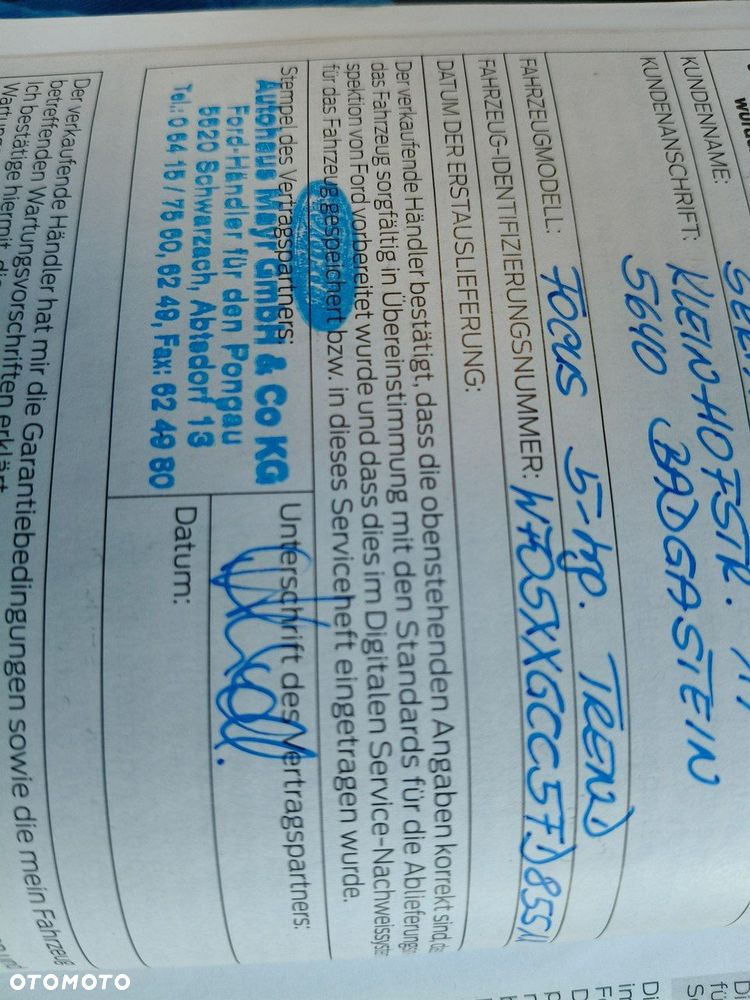 KUNDENNAME:
KUNDENANSCHRIFT: KLEIN-HOFSTR.
5640 BADGASTEIN
FAHRZEUGMODELL: FOCUS 5-trg. TREND
FAHRZEUG-IDENTIFIZIERUNGSNUMMER:
DATUM DER ERSTAUSLIEFERUNG:
Der verkaufende Händler bestätigt, dass die obenstehenden Angaben korrekt sind,
das Fahrzeug sorgfältig in Übereinstimmung mit den Standards für die
spektion von Ford vorbereitet wurde und dass dies im Digitalen
für das Fahrzeug gespeichert bzw. in dieses Serviceheft eingetragen wurde.
Stempel des Vertragspartners:
Autohaus Mayr GmbH & Co KG
Ford-Händler für den Pongau
5620 Schwarzach, Abtsdorf 13
Tel.: 0 64 15 / 75 60, 62 49, Fax: 62 49 80
Unterschrift des Vertragspartners:
Datum:
Der verkaufende Händler hat mir die Garantiebedingungen sowie die mein
betreffenden Wartungsvorschriften erklärt.
Ich bestätige hiermit,
OTOMOTO